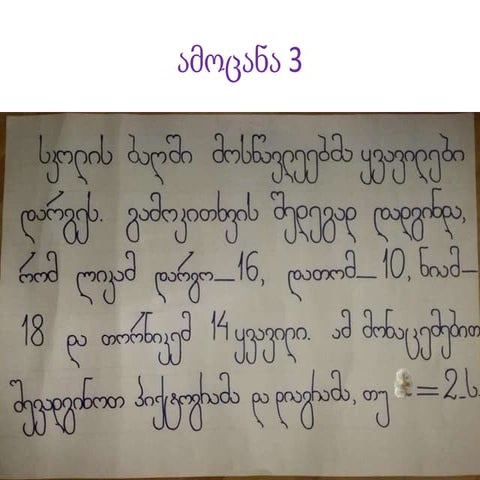 ამოცანა 3
სკოლის ბაღში მოსწავლეებმა ყვავილები
დარგეს. გამოკითხვის შედეგად დადგინდა,
რომ ლიკამ დარგო_16, დათომ_10, ნიამ_
18 და თორნიკემ 14 ყვავილი. ამ მონაცემებით
შევადგინოთ პიქტოგრამა და დიაგრამა, თუ =2_ს.